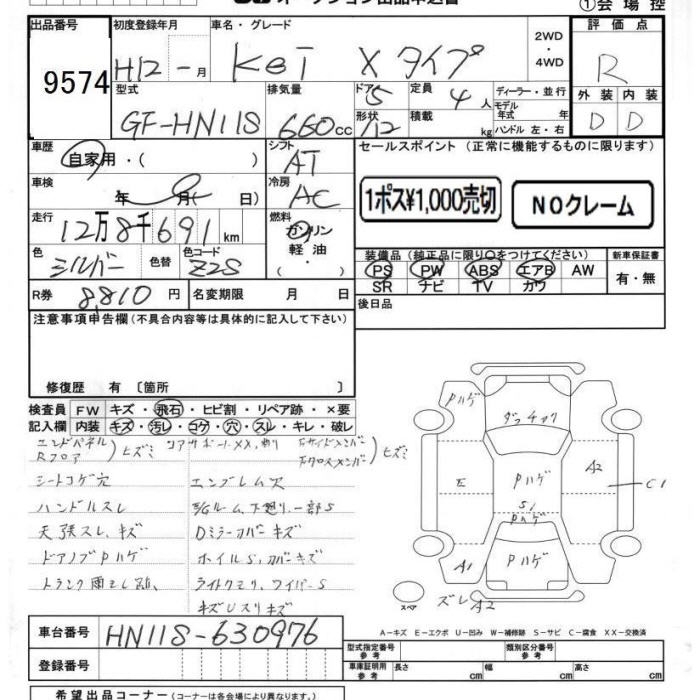 ①会場控
出品番号 9574
初度登録年月 H12 - 月
車名・グレード Kei Xタイプ
2WD ・ 4WD
評価点 R
外装 D 内装 D
型式 GF-HN11S
排気量 660 cc
ドア 5 形状 /12
定員 4 人
積載 kg
ディーラー・並行
モデル年式 年
ハンドル 左・右
車歴 自家用・( )
シフト AT
車検 年 月( 日)
冷房 AC
走行 12万8千691 km
燃料 ガソリン・軽油
色 シルバー 色替 色コード Z2S
R券 8,810 円 名変期限 月 日
セールスポイント (正常に機能するものに限ります)
1ポス¥1,000売切 NOクレーム
装備品 (純正品に限り○をつけてください)
新車保証書 有・無
PS PW ABS エアB AW
SR ナビ TV カワ
後日品
注意事項申告欄 (不具合内容等は具体的に記入して下さい)
修復歴 有 〔箇所 〕
検査員記入欄
FW キズ・飛石・ヒビ割・リペア跡・×要
内装 キズ・汚レ・コゲ・穴・スレ・キレ・破レ
エンドパネル Rフロア ヒズミ
コアサポートXX,曲リ
Fサイドメンバー Fクロスメンバー ヒズミ
シートコゲ穴
エンブレム穴
ハンドルスレ
E/Gルーム、下廻リ、一部S
天張スレ、キズ
Dミラーカバーキズ
ドアノブPハゲ
ホイルS,カバーキズ
トランク雨モレ跡、
ライトクモリ、ワイパーS
キズUスリキズ
Pハゲ
ダッチャク
A2
E
Pハゲ
C1
S1
Pハゲ
Pハゲ
A1
ズレA2
スペア
A-キズ E-エクボ U-凹み W-補修跡 S-サビ C-腐食 XX-交換済
車台番号 HN11S-630976
登録番号
型式指定番号 参考
類別区分番号 参考
車庫証明用 参考 長さ cm 幅 cm 高さ cm
希望出品コーナー (コーナーは各会場により異なります)